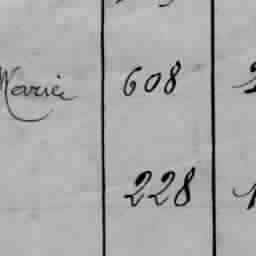 Marie 608
228